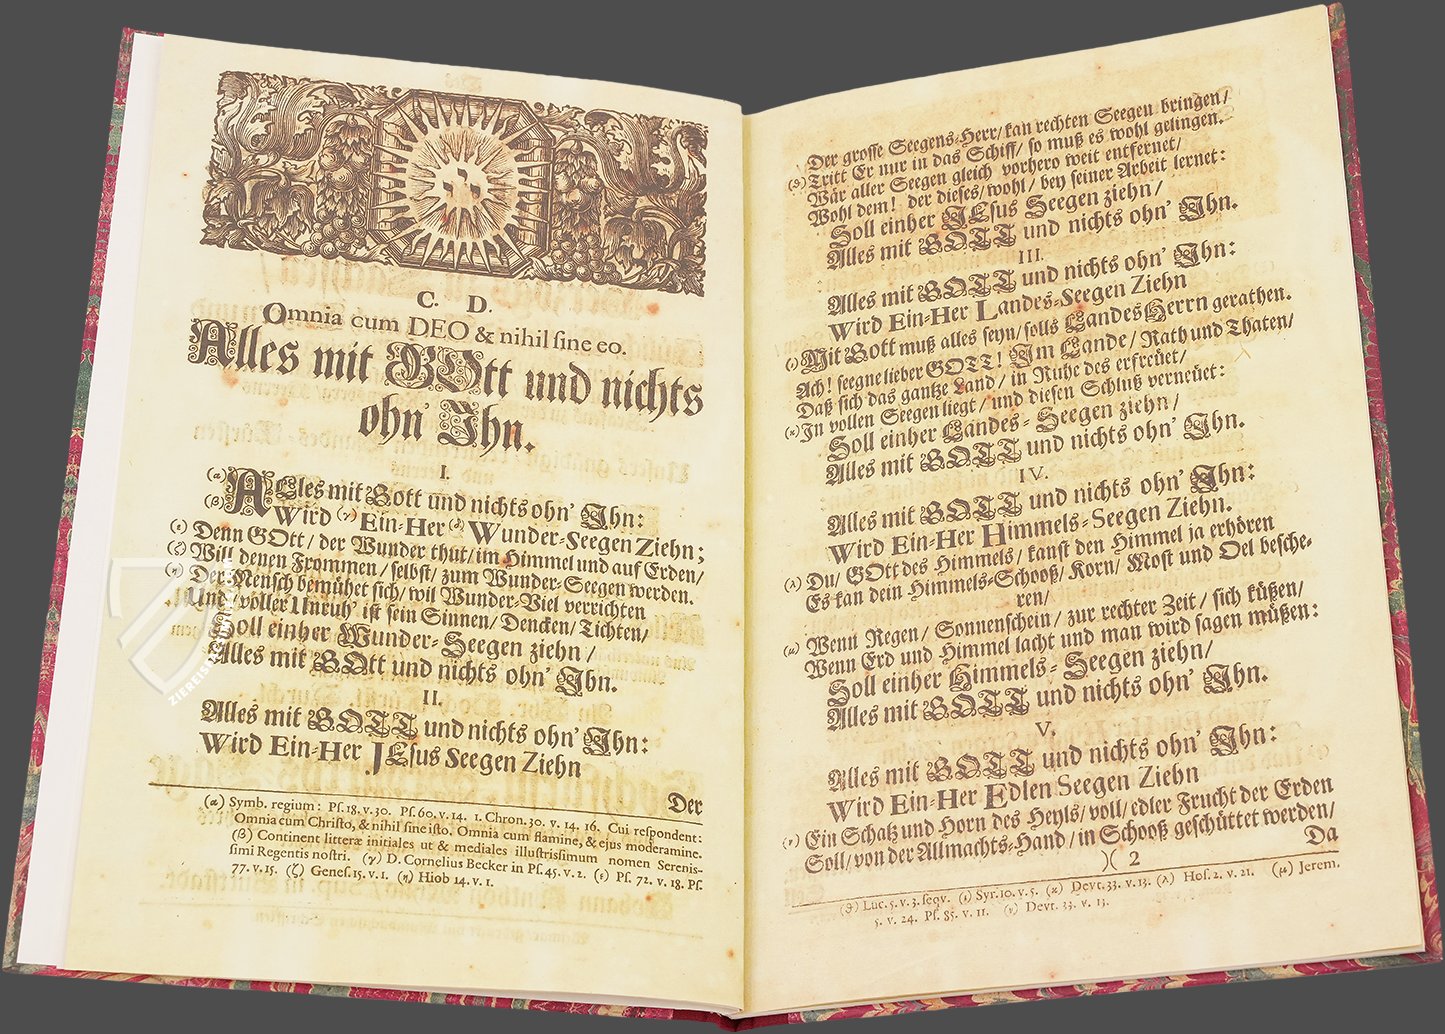 C. D.
Omnia cum DEO & nihil ſine eo.
Alles mit GOtt und nichts
ohn' Ihn.
I.
(α) ALles mit Gott und nichts ohn' Ihn:
(β) Wird (γ) Ein-Her (δ) Wunder-Seegen Ziehn;
(ε) Denn GOtt / der Wunder thut / im Himmel und auf Erden /
(ζ) Will denen Frommen / ſelbſt / zum Wunder-Seegen werden.
(η) Der Menſch bemühet ſich / wil Wunder-Viel verrichten
Und / voller Unruh' iſt ſein Sinnen / Dencken / Tichten /
Soll einher Wunder-Seegen ziehn /
Alles mit GOtt und nichts ohn' Ihn.
II.
Alles mit GOTT und nichts ohn' Ihn:
Wird Ein-Her JEſus Seegen Ziehn
Der
(α) Symb. regium: Pſ. 18. v. 30. Pſ. 60. v. 14. 1. Chron. 30. v. 14. 16. Cui reſpondent:
Omnia cum Chriſto, & nihil ſine iſto. Omnia cum flamine, & ejus moderamine.
(β) Continent litteræ initiales ut & mediales illuſtriſſimum nomen Sereniſ-
ſimi Regentis noſtri. (γ) D. Cornelius Becker in Pſ. 45. v. 2. (ε) Pſ. 72. v. 18. Pſ.
77. v. 15. (ζ) Geneſ. 15. v. 1. (η) Hiob 14. v. 1.
Der groſſe Seegens-Herr / kan rechten Seegen bringen /
(ϑ) Tritt Er nur in das Schiff / ſo muß es wohl gelingen.
Wär aller Seegen gleich vorhero weit entfernet /
Wohl dem! der dieſes / wohl / bey ſeiner Arbeit lernet:
Soll einher JEſus Seegen ziehn /
Alles mit GOTT und nichts ohn' Ihn.
III.
Alles mit GOTT und nichts ohn' Ihn:
Wird Ein-Her Landes-Seegen Ziehn
(ι) Mit Gott muß alles ſeyn / ſolls LandesHerrn gerathen.
Ach! ſeegne lieber GOTT! Im Lande / Rath und Thaten /
Daß ſich das gantze Land / in Ruhe des erfreüet /
(κ) In vollen Seegen liegt / und dieſen Schluß verneüet:
Soll einher Landes-Seegen ziehn /
Alles mit GOTT und nichts ohn' Ihn.
IV.
Alles mit GOTT und nichts ohn' Ihn:
Wird Ein-Her Himmels-Seegen Ziehn.
(λ) Du / GOtt des Himmels / kanſt den Himmel ja erhören
Es kan dein Himmels-Schooß / Korn / Moſt und Oel beſche-
ren /
(μ) Wenn Regen / Sonnenſchein / zur rechter Zeit / ſich küßen /
Wenn Erd und Himmel lacht und man wird ſagen müßen:
Soll einher Himmels-Seegen ziehn /
Alles mit GOTT und nichts ohn' Ihn.
V.
Alles mit GOTT und nichts ohn' Ihn:
Wird Ein-Her Edlen Seegen Ziehn
(ν) Ein Schatz und Horn des Heyls / voll / edler Frucht der Erden
Soll / von der Allmachts-Hand / in Schooß geſchüttet werden /
)( 2 Da
(ϑ) Luc. 5. v. 3. ſeqv. (ι) Syr. 10. v. 5. (κ) Devt. 33. v. 13. (λ) Hoſ. 2. v. 21. (μ) Jerem.
5. v. 24. Pſ. 85. v. 11. (ν) Devt. 33. v. 13.